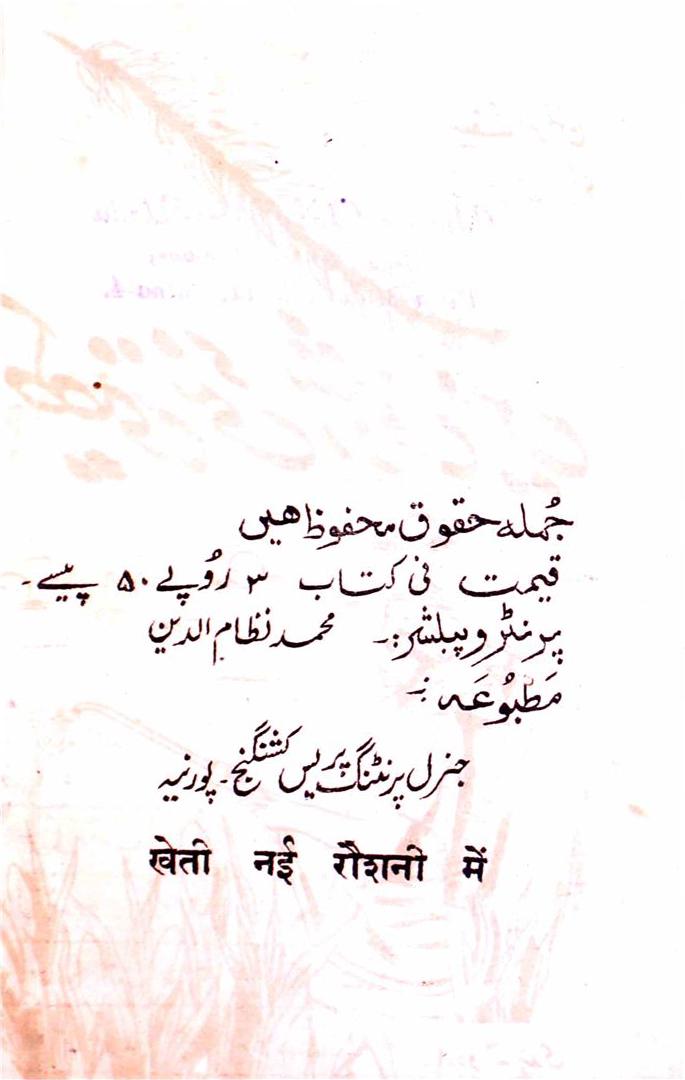 جُملہ حقوق محفوظ ھیں
قیمت فی کتاب ۳ رُوپے ۵۰ پیسے۔
پرنٹر و پبلشر:۔ محمد نظام الدین
مَطبُوعَہ :۔
جنرل پرنٹنگ پریس کشنگنج۔ پورنیہ
खेती नई रौशनी में